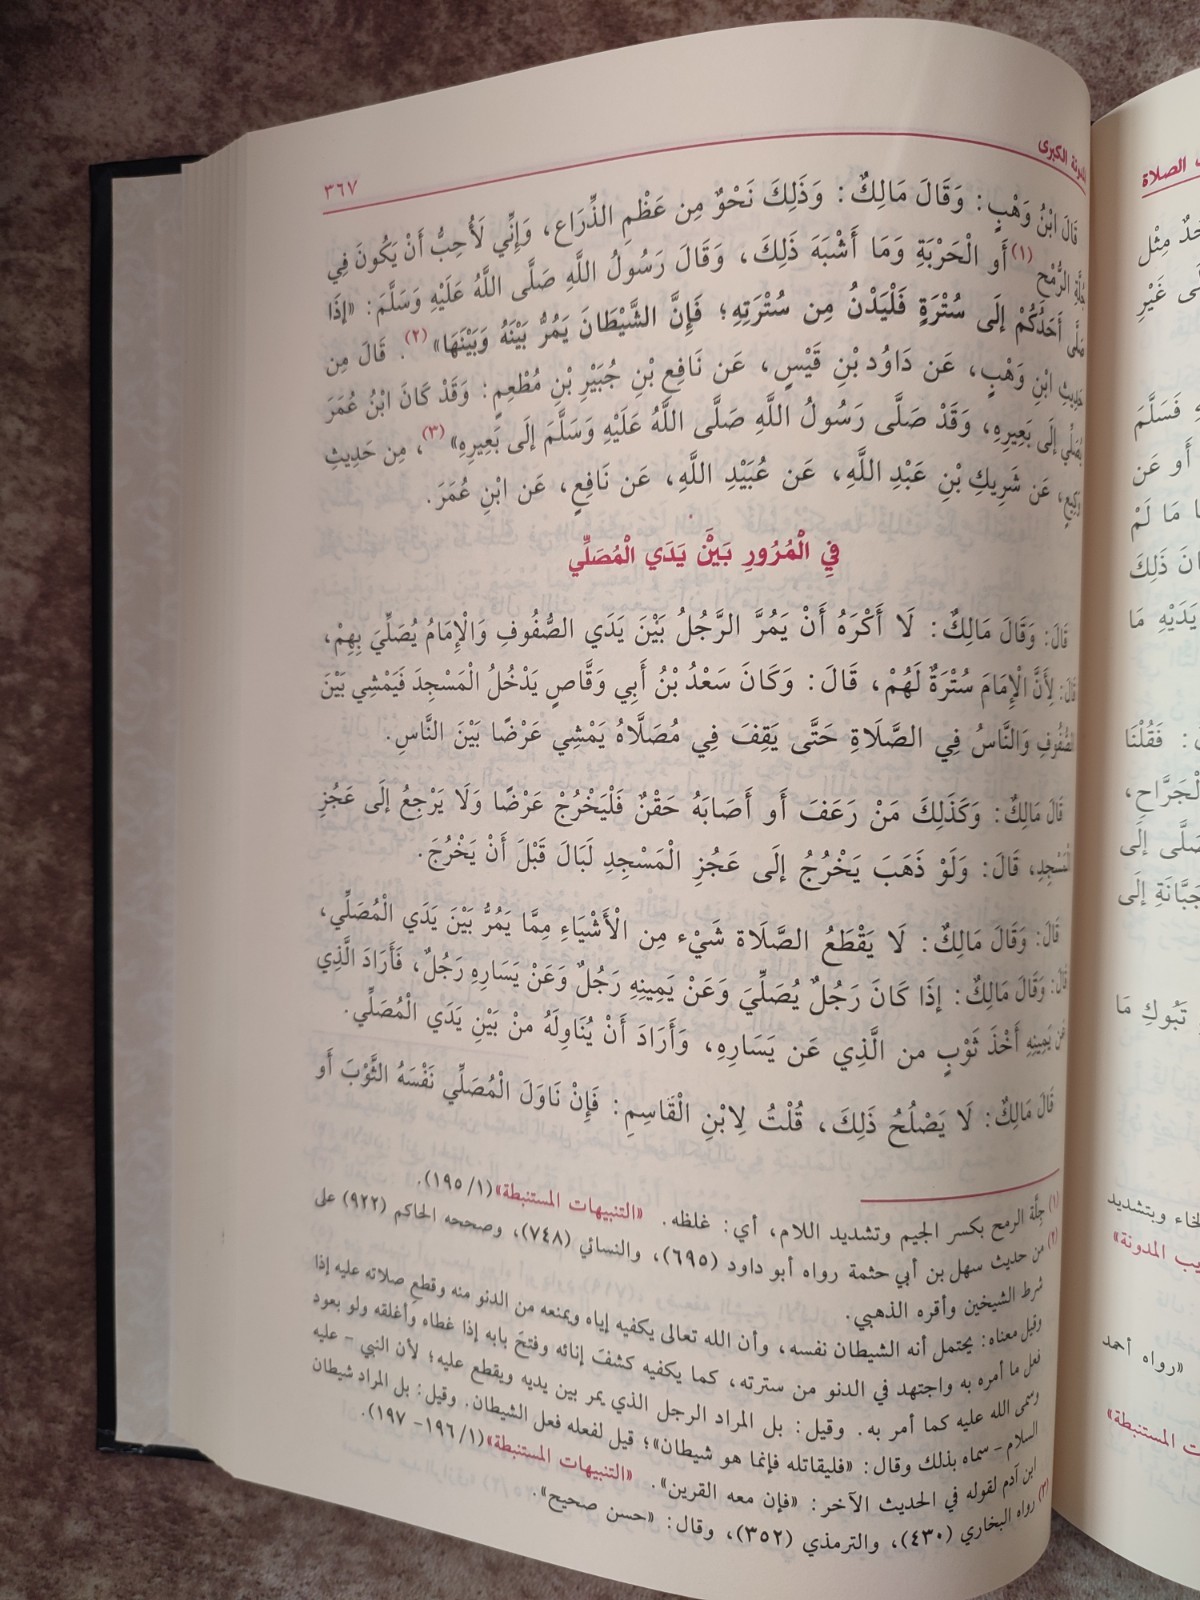 المدونة الكبرى
٣٦٧
قَالَ ابْنُ وَهْبٍ: وَقَالَ مَالِكٌ: وَذَلِكَ نَحْوٌ مِن عَظْمِ الذِّرَاعِ، وَإِنِّي لَأُحِبُّ أَنْ يَكُونَ فِي
جُلَّةِ الرُّمْحِ(١) أَو الْحَرْبَةِ وَمَا أَشْبَهَ ذَلِكَ، وَقَالَ رَسُولُ اللَّهِ صَلَّى اللَّهُ عَلَيْهِ وَسَلَّمَ: «إِذَا
صَلَّى أَحَدُكُمْ إِلَى سُتْرَةٍ فَلْيَدْنُ مِن سُتْرَتِهِ؛ فَإِنَّ الشَّيْطَانَ يَمُرُّ بَيْنَهُ وَبَيْنَهَا»(٢). قَالَ مِن
حَدِيثِ ابْنِ وَهْبٍ، عَن دَاوُد بْنِ قَيْسٍ، عَن نَافِعِ بْنِ جُبَيْرِ بْنِ مُطْعِمٍ: وَقَدْ كَانَ ابْنُ عُمَرَ
يُصَلِّي إِلَى بَعِيرِهِ، وَقَدْ صَلَّى رَسُولُ اللَّهِ صَلَّى اللَّهُ عَلَيْهِ وَسَلَّمَ إِلَى بَعِيرِهِ»(٣)، مِن حَدِيثِ
وَكِيعٍ، عَن شَرِيكِ بْنِ عَبْدِ اللَّهِ، عَن عُبَيْدِ اللَّهِ، عَن نَافِعٍ، عَن ابْنِ عُمَرَ.
فِي الْمُرُورِ بَيْنَ يَدَي الْمُصَلِّي
قَالَ: وَقَالَ مَالِكٌ: لَا أَكْرَهُ أَنْ يَمُرَّ الرَّجُلُ بَيْنَ يَدَي الصُّفُوفِ وَالْإِمَامُ يُصَلِّيَ بِهِمْ،
قَالَ: لِأَنَّ الْإِمَامَ سُتْرَةٌ لَهُمْ، قَالَ: وَكَانَ سَعْدُ بْنُ أَبِي وَقَّاصٍ يَدْخُلُ الْمَسْجِدَ فَيَمْشِي بَيْنَ
الصُّفُوفِ وَالنَّاسُ فِي الصَّلَاةِ حَتَّى يَقِفَ فِي مُصَلَّاهُ يَمْشِي عَرْضًا بَيْنَ النَّاسِ.
قَالَ مَالِكٌ: وَكَذَلِكَ مَنْ رَعَفَ أَو أَصَابَهُ حَقْنٌ فَلْيَخْرُجْ عَرْضًا وَلَا يَرْجِعُ إِلَى عَجُزِ
الْمَسْجِدِ، قَالَ: وَلَوْ ذَهَبَ يَخْرُجُ إِلَى عَجُزِ الْمَسْجِدِ لَبَالَ قَبْلَ أَنْ يَخْرُجَ.
قَالَ: وَقَالَ مَالِكٌ: لَا يَقْطَعُ الصَّلَاة شَيْء مِن الْأَشْيَاءِ مِمَّا يَمُرُّ بَيْنَ يَدَي الْمُصَلِّي،
قَالَ: وَقَالَ مَالِكٌ: إِذَا كَانَ رَجُلٌ يُصَلِّيَ وَعَنْ يَمِينِهِ رَجُلٌ وَعَنْ يَسَارِهِ رَجُلٌ، فَأَرَادَ الَّذِي
عَن يَمِينِهِ أَخْذَ ثَوْبٍ من الَّذِي عَن يَسَارِهِ، وَأَرَادَ أَنْ يُنَاوِلَهُ منْ بَيْنِ يَدَي الْمُصَلِّي.
قَالَ مَالِكٌ: لَا يَصْلُحُ ذَلِكَ، قُلْتُ لِابْنِ الْقَاسِمِ: فَإِنْ نَاوَلَ الْمُصَلِّي نَفْسَهُ الثَّوْبَ أَو
(١) جِلَّة الرمح بكسر الجيم وتشديد اللام، أي: غلظه. «التنبيهات المستنبطة»(١/ ١٩٥).
(٢) من حديث سهل بن أبي حثمة رواه أبو داود (٦٩٥)، والنسائي (٧٤٨)، وصححه الحاكم (٩٢٢) على
شرط الشيخين وأقره الذهبي.
وقيل معناه: يحتمل أنه الشيطان نفسه، وأن الله تعالى يكفيه إياه ويمنعه من الدنو منه وقطعِ صلاته عليه إذا
فعل ما أمره به واجتهد في الدنو من سترته، كما يكفيه كشفَ إنائه وفتحَ بابه إذا غطاه وأغلقه ولو بعود
وسمى الله عليه كما أمر به. وقيل: بل المراد الرجل الذي يمر بين يديه ويقطع عليه؛ لأن النبي – عليه
السلام – سماه بذلك وقال: «فليقاتله فإنما هو شيطان»؛ قيل لفعله فعل الشيطان. وقيل: بل المراد شيطان
ابن آدم لقوله في الحديث الآخر: «فإن معه القرين». «التنبيهات المستنبطة»(١/ ١٩٦– ١٩٧).
(٣) رواه البخاري (٤٣٠)، والترمذي (٣٥٢)، وقال: «حسن صحيح».
الصلاة
مِثْل
غَيْرِ
فَسَلَّمَ
أَو عَن
مَا لَمْ
ذَلِكَ
يَدَيْهِ مَا
فَقُلْنَا
الْجَرَّاحِ،
إِلَى
إِلَى
تَبُوكِ مَا
وبتشديد
المدونة»
«رواه أحمد
المستنبطة»